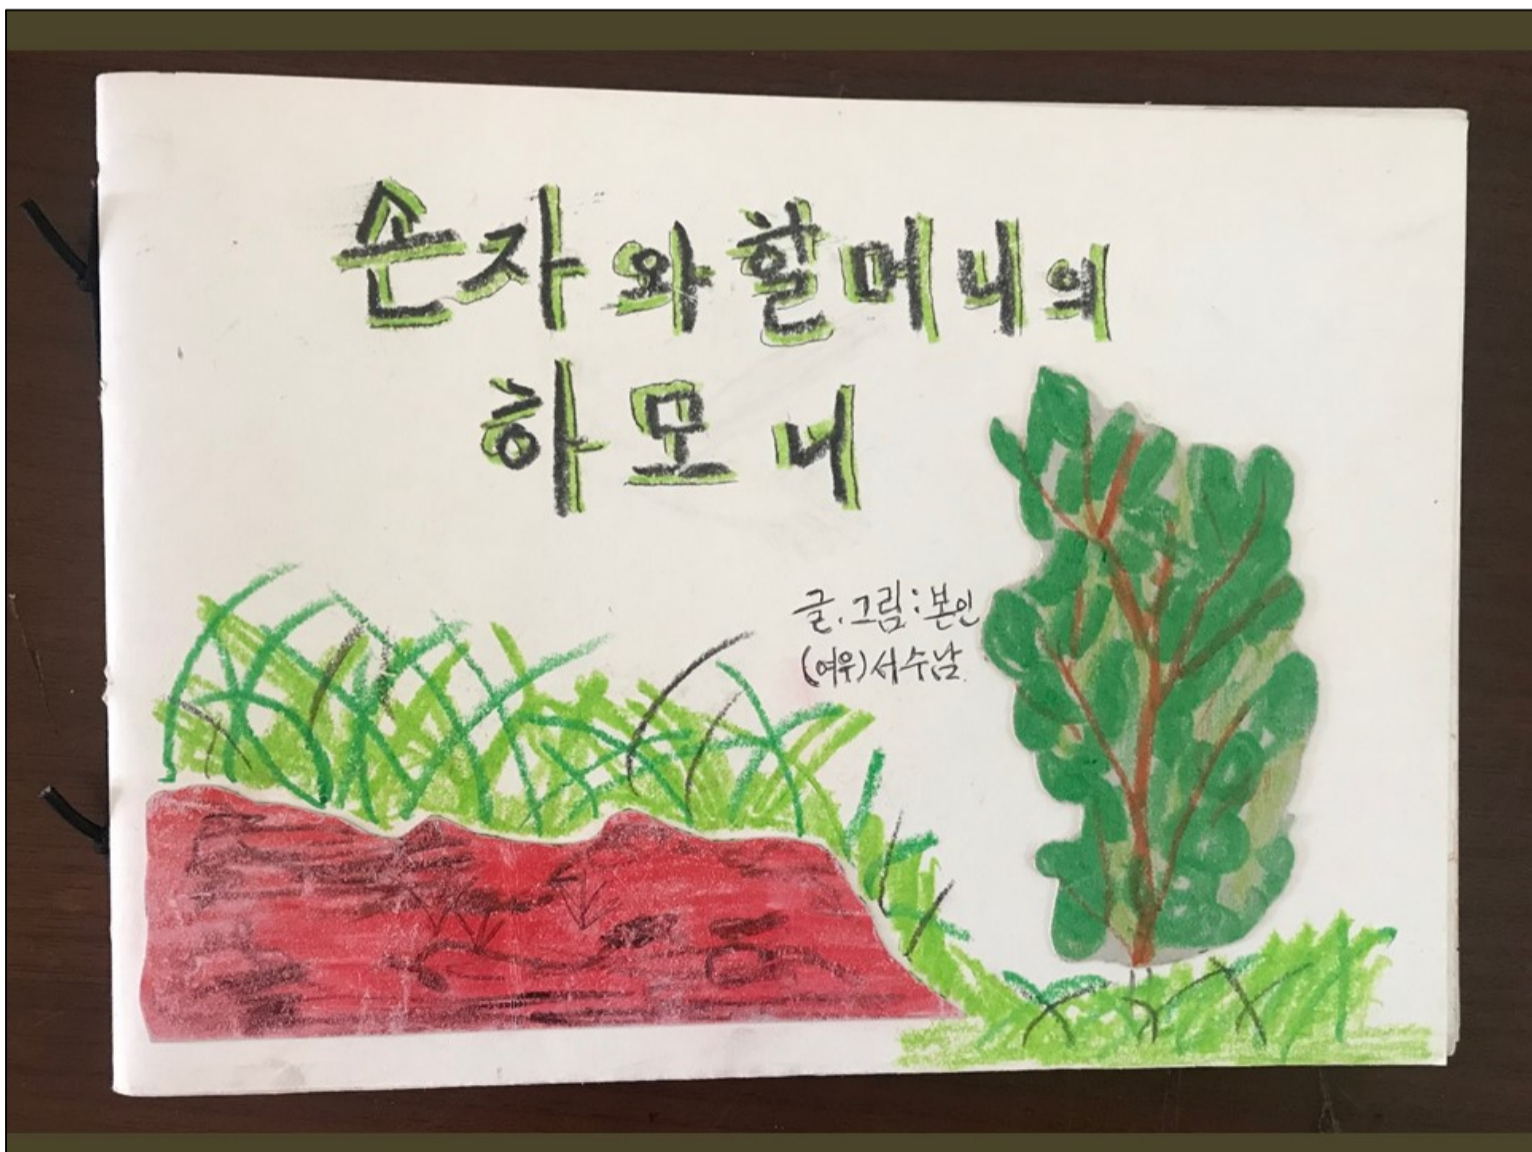 손자와 할머니의
하모니
글.그림:본인
(여우)서수남